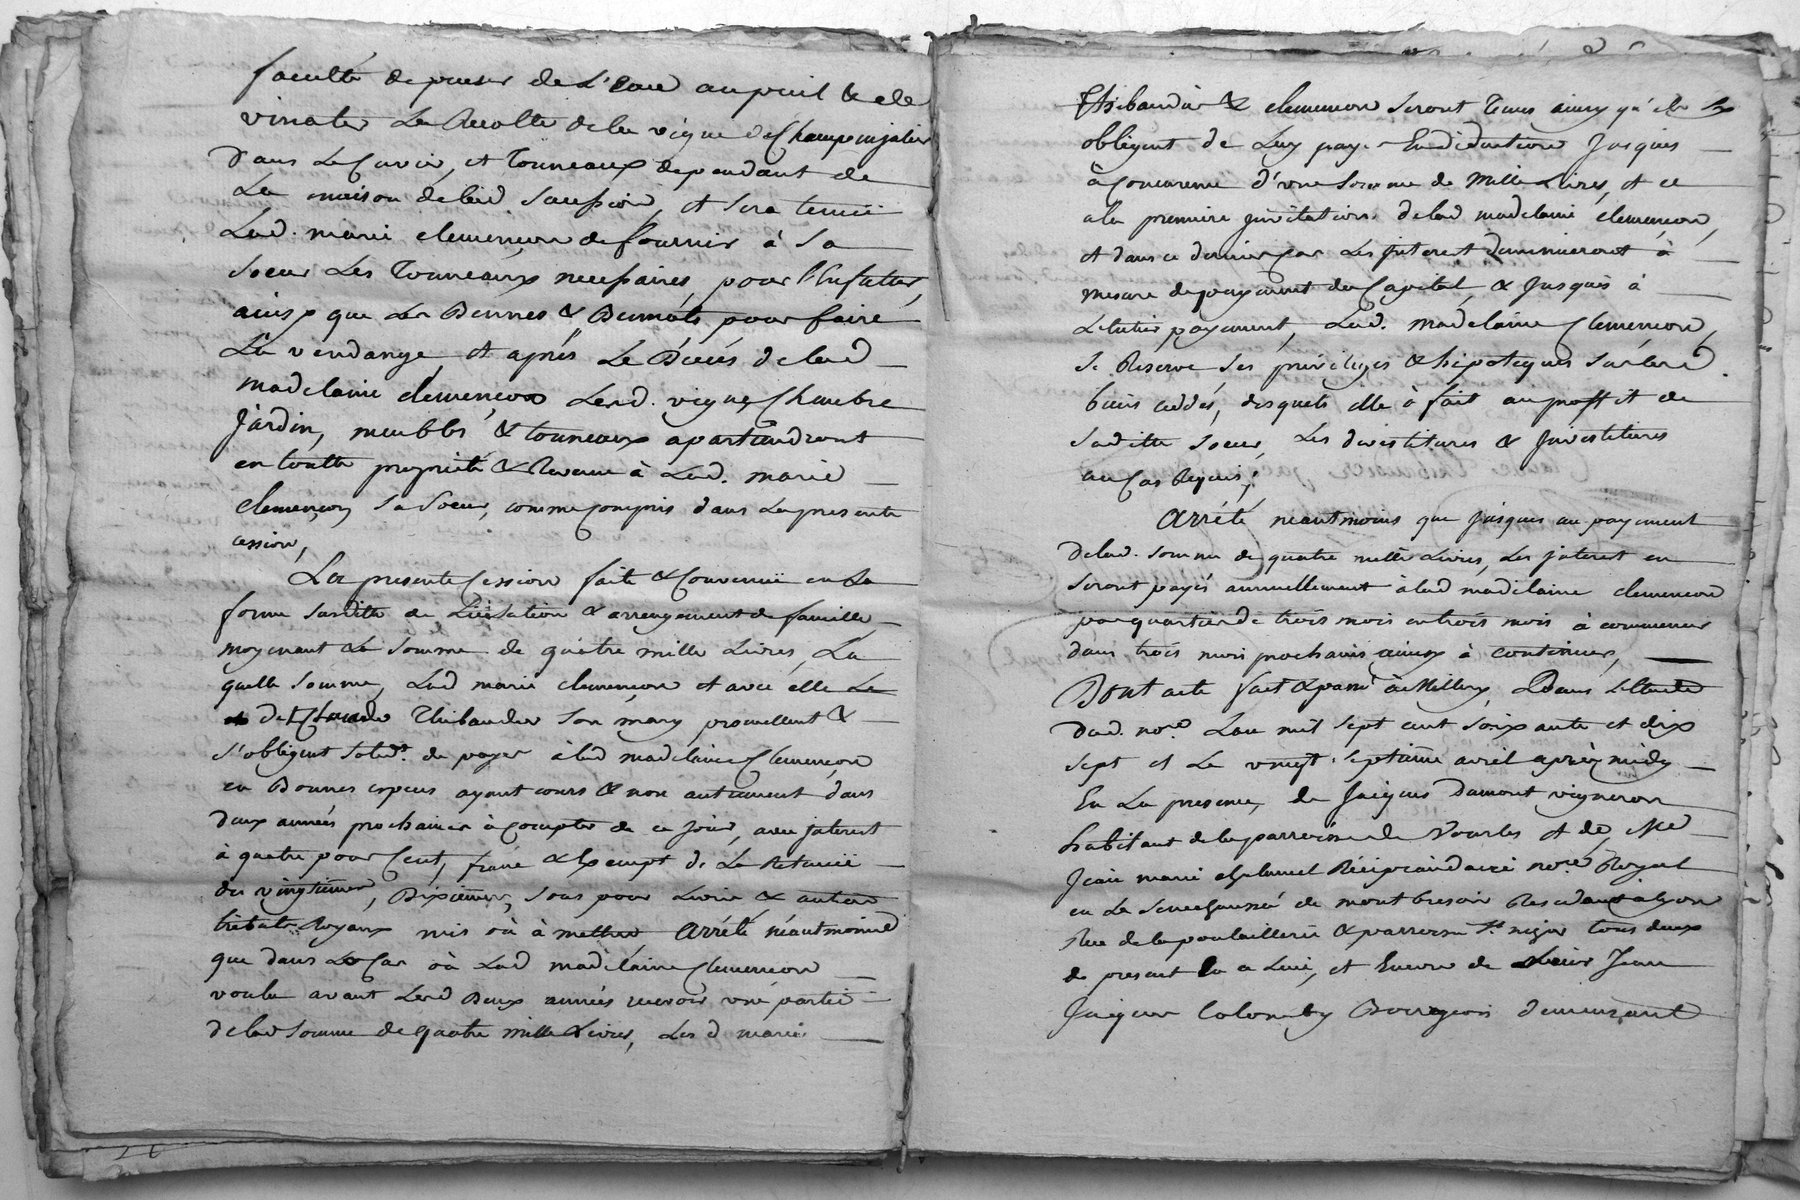 faculté de puiser de L'Eau au puit & de
vinater La Recolte de la vigne de Champ
dans Le Cuvier, et Tonneaux dependant de
La maison de lad. Succession, et sera tenüe
Lad. marie clemençon de fournir à Sa
Soeur Les Tonneaux necessaires, pour l'Enfutter,
ainsy que Les Bennes & Bennots pour faire
La vendange, et aprés Le Décés de lad
madelaine clemençon Lesd. vigne, Chambre
Jardin, meubles & tonneaux apartiendront
en toutte proprieté & Revenu à Lad. marie
Clemençon Sa Soeur, comme Compris dans La presente
cession,
La presente Cession faite & Convenüe en La
forme Susditte de Licitation & arrengement de famille,
moyenant La Somme de quatre mille Livres, La
quelle Somme, Lad marie clemençon et avec elle Le
d Claude Thibaudier Son mary promettent &
s'obligent Solidt. de payer à lad madelaine Clemençon
en Bonnes especes ayant cours & non autrement dans
deux années prochaines à Compter de ce jour, avec jnterest
à quatre pour Cent, franc & Exempt de La Retenüe
des vingtiémes, Dixiémes, Sous pour Livre & autres
tributs Royaux mis où à mettre, Arrété néautmoins
que dans Le Cas où Lad madelaine Clemençon
voulu avant Lesd Deux années recevoir une partie
de lad Somme de quatre mille Livres, Les d marie
Thibaudier & clemençon Seront Tenus ainsy qu'ils Sy
obligent de Luy payer En diduction Jusques
à Concurence d'une Somme de Mille Livres, et ce
a la premiere jnvitation de lad madelaine clemençon,
et dans ce dernier Cas Les jnterest diminueront à
mesure du payement du Capital, & Jusqués à
L'entier payement, Lad. madelaine Clemençon,
Se Réserve Ses privileges & hipoteques Sur lesd.
biens cedés, desquels elle à fait au proffit de
Saditte Soeur, Les divestitures & jnvestitures
au Cas Requis;
Arrété neautmoins que jusques au payement
de lad. Somme de quatre mille Livres, Les jnterest en
Seront payés annuellement à lad madelaine clemençon
par quartier de trois mois en trois mois à commencer
dans trois mois prochains ainsy à continuer,
Dont acte fait & passé à Millery Dans L'Etude
dud. nore. L'an mil Sept cent Soixante et dix
Sept et Le vingt Septième avril aprés midy
En La presence, de Jacques Damont vigneron
habitant de la parroisse de Vourles et de, Me
Jean marie Recipiandaire nore. Royal
en La Senechaussé de montbrison Residant à Lyon
Rüe de la poulaillerie & parroisse St. nizier tous deux
de present En ce Lieu, et Encore de Sieur Jean
Jacques Colomby Bourgeois demeurant